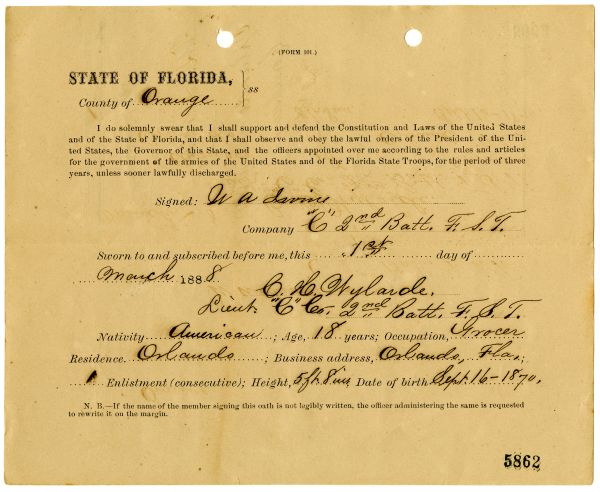 (FORM 101.)
STATE OF FLORIDA,
ss
County of Orange
I do solemnly swear that I shall support and defend the Constitution and Laws of the United States
and of the State of Florida, and that I shall observe and obey the lawful orders of the President of the Uni-
ted States, the Governor of this State, and the officers appointed over me according to the rules and articles
for the government of the armies of the United States and of the Florida State Troops, for the period of three
years, unless sooner lawfully discharged.
Signed: W A Irvine
Company "C" 2nd Batt. F. S. T.
Sworn to and subscribed before me, this 1st day of
March 1888
C. H. Wylarde.
Lieut. "C" Co. 2nd Batt. F. S. T.
Nativity American; Age, 18 years; Occupation, Grocer
Residence Orlando; Business address, Orlando, Fla.;
1 Enlistment (consecutive); Height, 5 ft. 8 in; Date of birth Sept. 16-1870.
N. B.—If the name of the member signing this oath is not legibly written, the officer administering the same is requested
to rewrite it on the margin.
5862